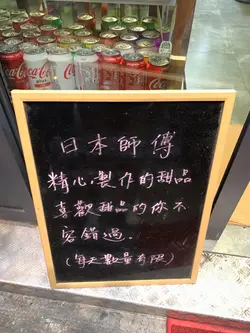 Coca-Cola
日本師傅
精心製作的甜品
喜歡甜品的你不
容錯過.
(每天數量有限)